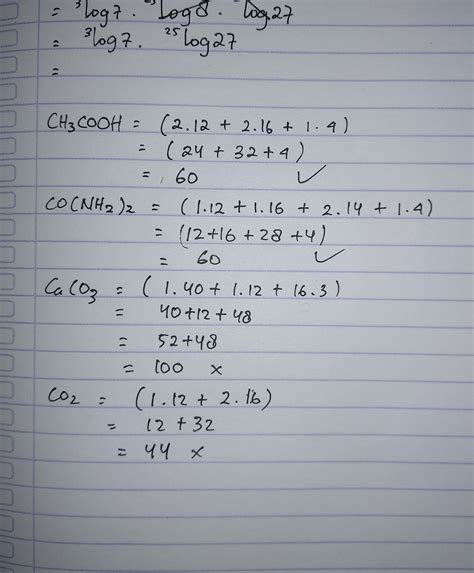 = ³log7 · ²⁵log8 · log27
= ³log7 · ²⁵log27
=
CH₃COOH = (2.12 + 2.16 + 1.4)
= (24 + 32 + 4)
= 60 ✓
CO(NH₂)₂ = (1.12 + 1.16 + 2.14 + 1.4)
= (12+16 + 28 +4)
= 60 ✓
CaCO₃ = (1.40 + 1.12 + 16.3)
= 40+12+48
= 52+48
= 100 ×
CO₂ = (1.12 + 2.16)
= 12 + 32
= 44 ×